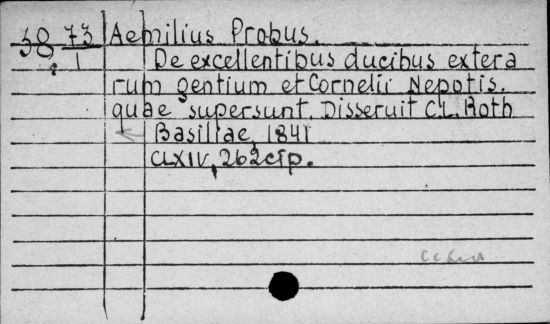 38 73 Aemilius Probus.
8. 1 De excellentibus ducibus extera
rum gentium et Cornelii Nepotis.
quae supersunt. Disseruit C.L. Roth
Basiliae, 1841
CLXIV, 262 стр.